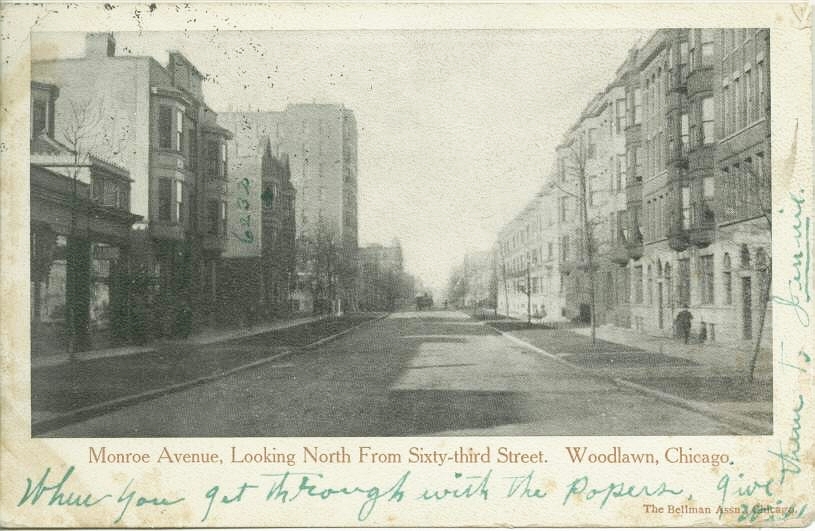 6232
Monroe Avenue, Looking North From Sixty-third Street. Woodlawn, Chicago.
When you get through with the papers, give
them to Jennie.
The Bellman Assn. Chicago.